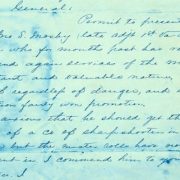 General:
Permit to present
Jno S. Mosby (late adjt 1st Va
who for months past has
and again services of the m
tant and valuable nature,
regardless of danger, and
son fairly won promotion.
anxious that he should get th
of a co of sharpshooters in
but the muster rolls have no
ent in I commend him to yo
ce. I